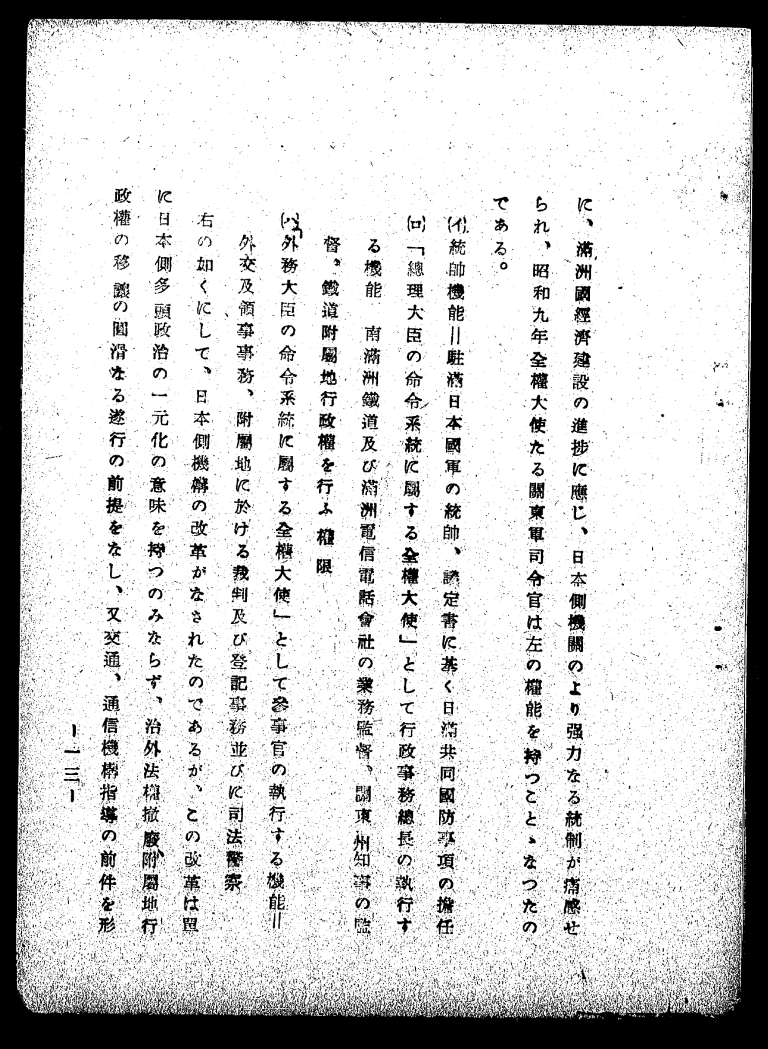 に、滿洲國經濟建設の進捗に應じ、日本側機關のより强力なる統制が痛感せ
られ、昭和九年全權大使たる關東軍司令官は左の權能を持つことゝなつたの
である。
(イ)統帥機能＝駐滿日本國軍の統帥、議定書に基く日滿共同國防事項の擔任
(ロ)「總理大臣の命令系統に屬する全權大使」として行政事務總長の執行す
る機能　南滿洲鐵道及び滿洲電信電話會社の業務監督、關東州知事の監
督。鐵道附屬地行政權を行ふ權限
(ハ)「外務大臣の命令系統に屬する全權大使」として參事官の執行する機能＝
外交及領事事務、附屬地に於ける裁判及び登記事務並びに司法警察
右の如くにして、日本側機構の改革がなされたのであるが、この改革は單
に日本側多頭政治の一元化の意味を持つのみならず、治外法權撤廢、附屬地行
政權の移讓の圓滑なる遂行の前提をなし、又交通、通信機構指導の前件を形
ー一三ー